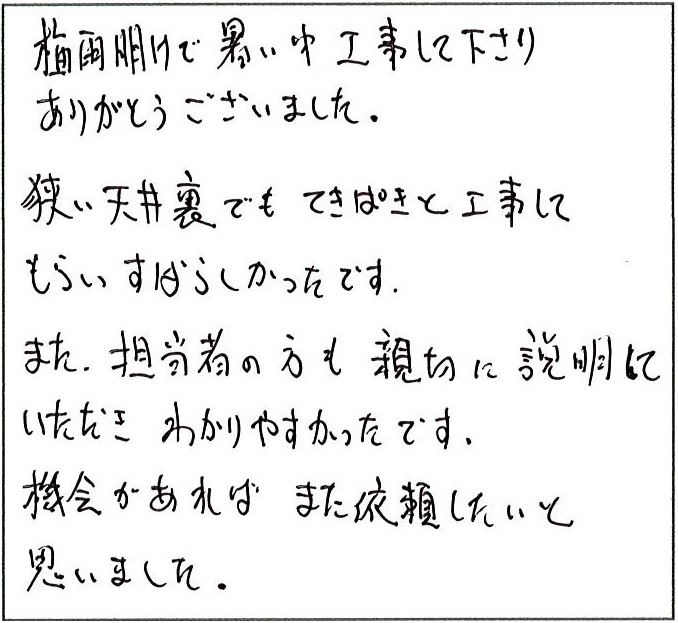 梅雨明けで 暑い中 工事して下さり
ありがとうございました。
狭い天井裏でも てきぱきと工事して
もらい すばらしかったです.
また. 担当者の方も 親切に 説明して
いただき わかりやすかったです.
機会があれば また依頼したいと
思いました。